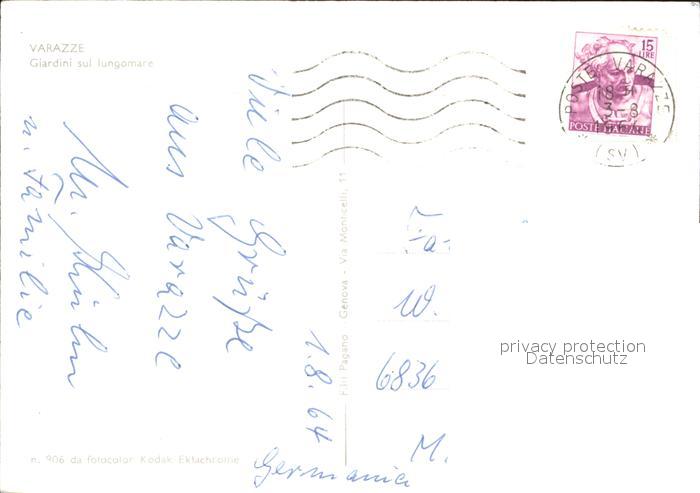 VARAZZE
Giardini sul lungomare
15
LIRE
POSTE ITALIANE
POSTE VARAZZE
(SV)
Viele Grüße
aus Varazze
u. Familie
1.8.64
F.lli Pagano - Genova - Via Monticelli, 11
Fa.
W.
6836
M.
Germania
privacy protection
Datenschutz
n. 906 da fotocolor Kodak Ektachrome